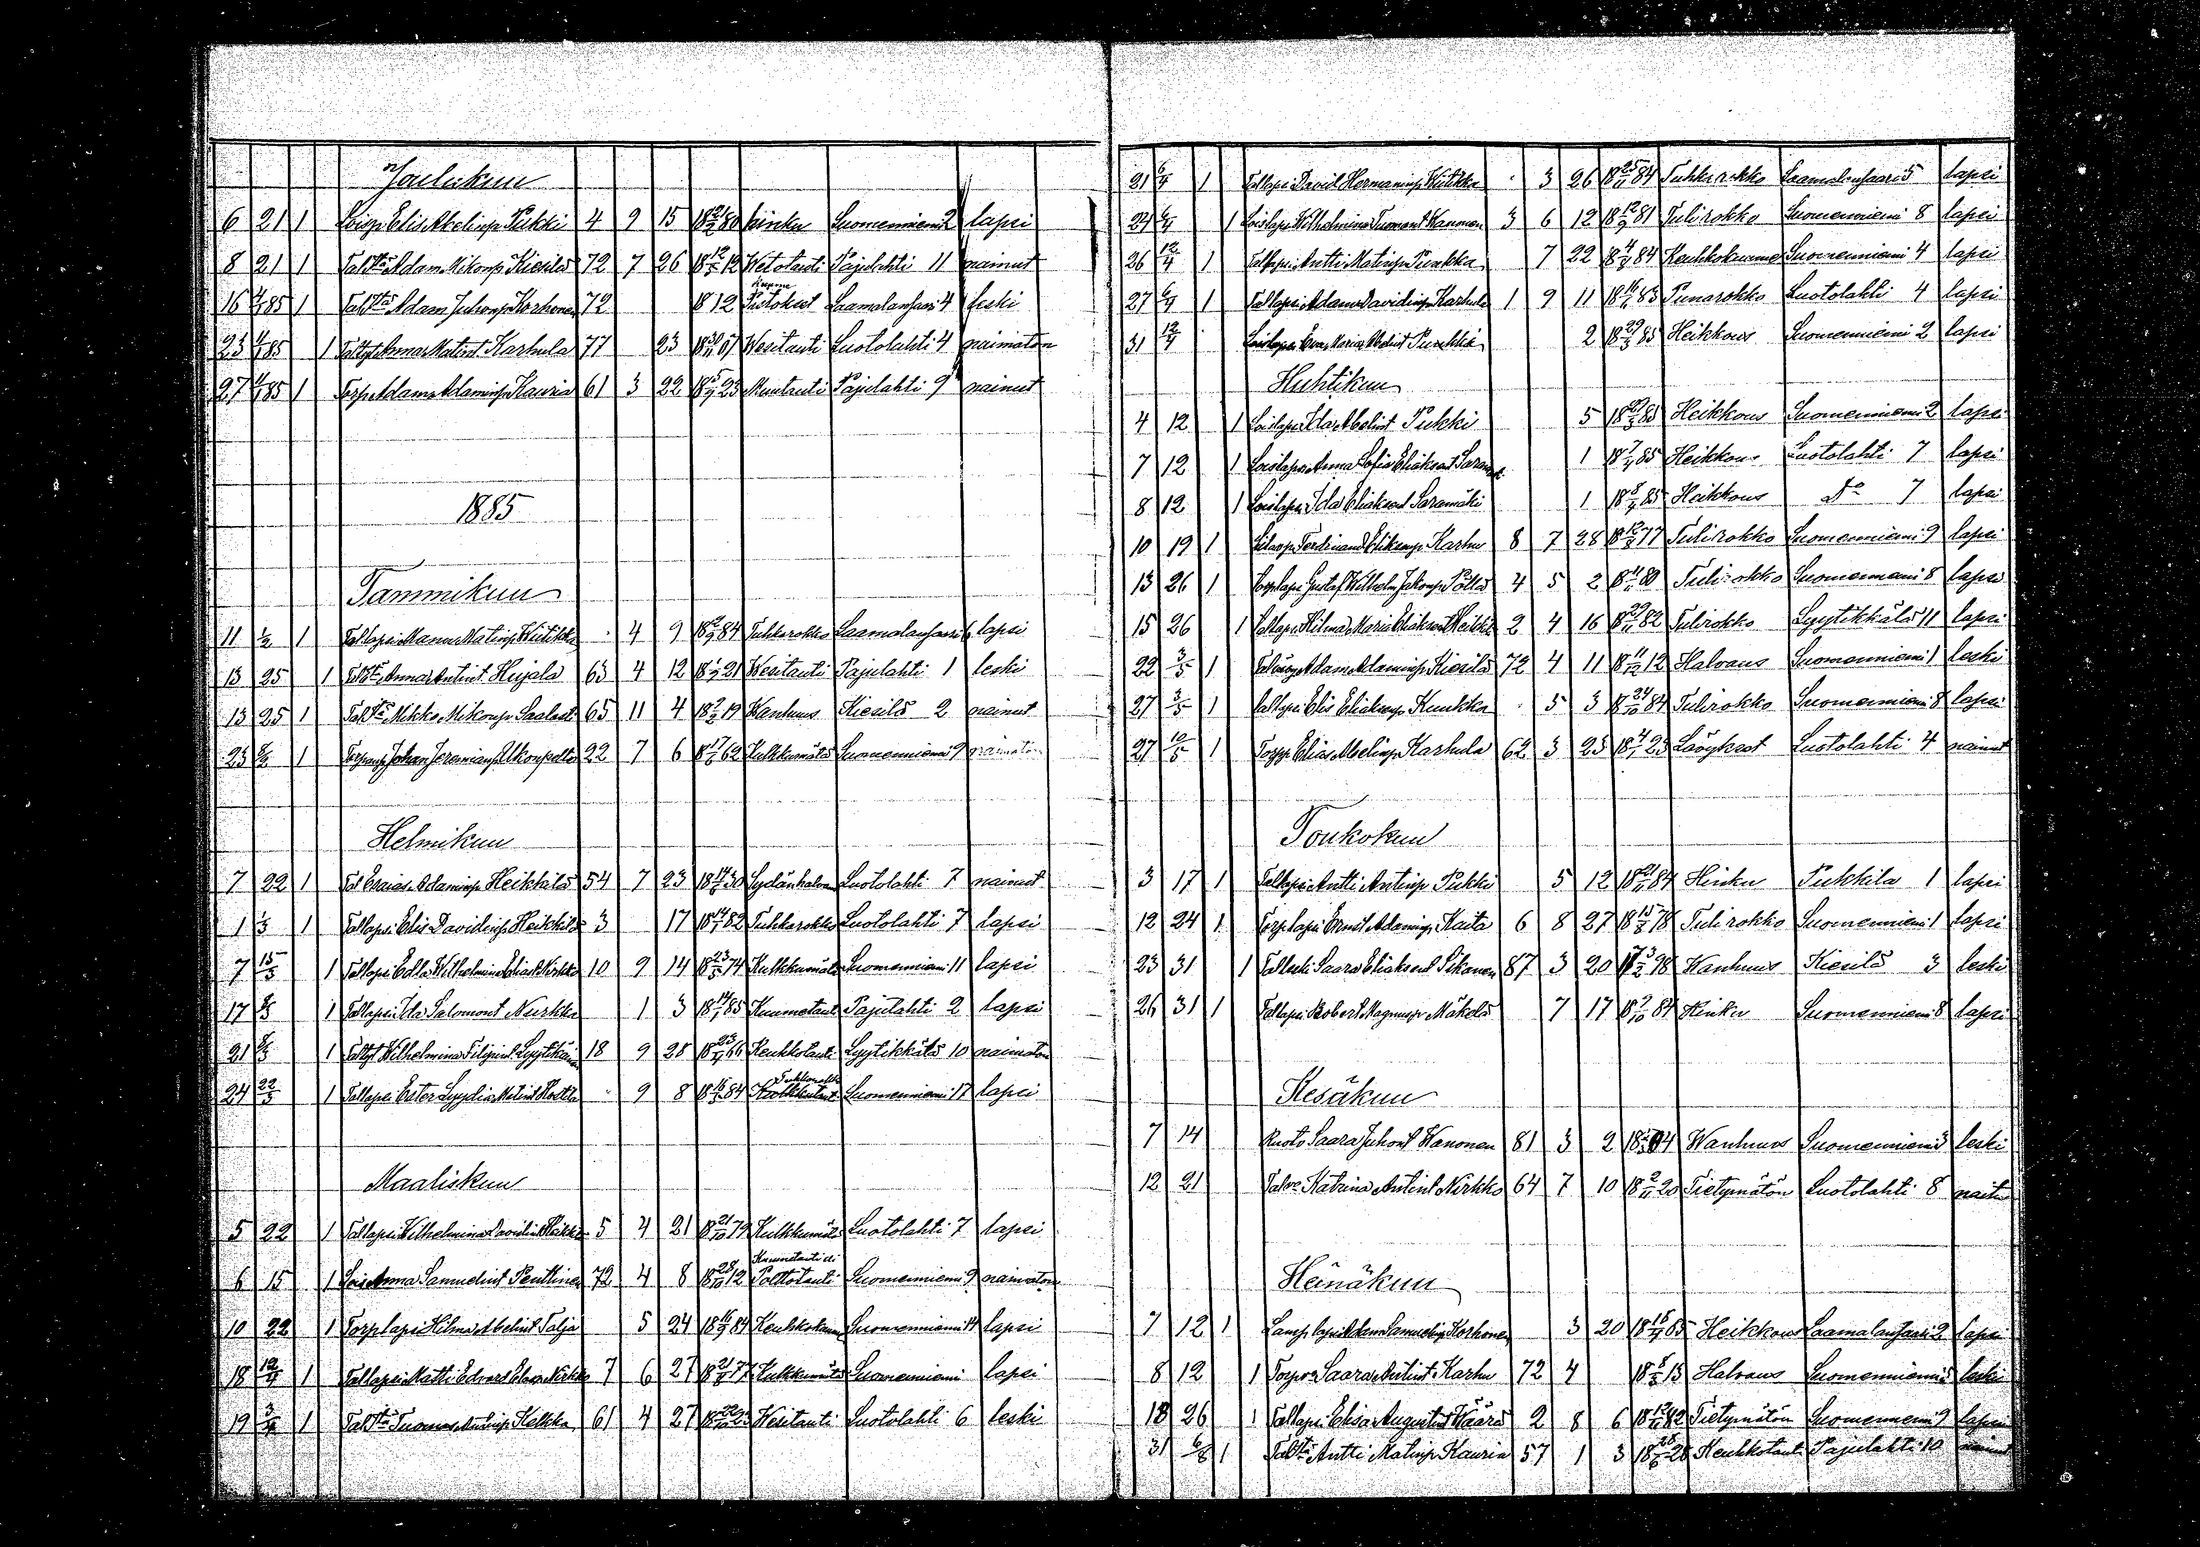 Joulukuu
6 21 1 Loisp. Elis Abelinp. Pukki 4 9 15 18 21/2 80 hinku Suomenniemi 2 lapsi
8 21 1 Tal. Adam Mikonp. Kiesilä 72 7 26 18 12/4 12 Wetotauti Pajulahti 11 nainut
16 4/1 85 1 Adam Juhonp. Korhonen 72 1812 Saamalansaari 4 leski
23 4/1 85 1 Anna Matint. Karhula 77 23 18 30/11 07 Wesitauti Luotolahti 4 naimaton
27 4/1 85 1 Torp. Adam Adaminp. Kauria 61 3 22 18 5/9 23 Pajulahti 9 nainut
1885
Tammikuu
11 1/2 1 Tallapsi Manu Matinp. Kiitikka 4 9 18 2/9 84 Tuhkarokko Saamalansaari 6 lapsi
13 25 1 Anna Antint. Hujala 63 4 12 18 1/9 21 Wesitauti Pajulahti 1 leski
13 25 1 Mikko Mikonp. 65 11 4 18 9/2 19 Wanhuus Kiesilä 2 nainut
23 8/2 1 Johan Jeremianp. Ukonpelto 22 7 6 18 17/6 62 Kulkkumätä Suomenniemi 9 naimaton
Helmikuu
7 22 1 Tal. Esaias Adaminp. Heikkilä 54 7 23 18 14/6 30 Sydänhalv. Luotolahti 7 nainut
1 1/3 1 Tallapsi Elis Davidinp. Heikkilä 3 17 18 14/1 82 Tuhkarokko Luotolahti 7 lapsi
7 15/3 1 Tallapsi Edla Wilhelmina Nirkko 10 9 14 18 23/4 74 Kulkkumätä Suomenniemi 11 lapsi
17 8/3 1 Tallapsi Ida Salomont. 1 3 18 14/1 85 Kuumetaut Pajulahti 2 lapsi
21 8/3 1 Wilhelmina Lyytikäin 18 9 28 18 23/4 66 Keuhkotauti Lyytikkälä 10 naimaton
24 22/3 1 Tallapsi Ester Lyydia Matint. 9 8 18 16/5 84 Suomenniemi 17 lapsi
Maaliskuu
5 22 1 Tallapsi Wilhelmina Davidint. 5 4 21 18 21/10 79 Kulkkumätä Luotolahti 7 lapsi
6 15 1 Lois. Anna Samuelint. Penttinen 72 4 8 18 28/10 12 Kuumetauti eli Polttotauti Suomenniemi 9 naimaton
10 22 1 Torplapsi Hilma Abelint. Talja 5 24 18 16/9 84 Keuhkokuume Suomenniemi 14 lapsi
18 12/4 1 Tallapsi Matti Edvard Nirkko 7 6 27 18 21/8 77 Kulkkumätä Suomenniemi lapsi
19 3/4 1 Tuomas Antinp. Kekka 61 4 27 18 22/10 23 Wesitauti Luotolahti 6 leski
21 6/4 1 Tallapsi David Hermaninp. Kiitikka 3 26 18 25/11 84 Tuhkarokko Saamalansaari 5 lapsi
24 6/4 1 Loislapsi Wilhelmina Tuomont. Wanonen 3 6 12 18 12/9 81 Tulirokko Suomenniemi 8 lapsi
26 12/4 1 Tallapsi Antti Matinp. Purkka 7 22 18 4/8 84 Keuhkokuume Suomenniemi 4 lapsi
27 6/4 1 Tallapsi Adam Davidinp. Karhula 1 9 11 18 16/6 83 Punarokko Luotolahti 4 lapsi
31 12/4 Loislapsi Eva Maria Abelint. 2 18 29/3 85 Heikkous Suomenniemi 2 lapsi
Huhtikuu
4 12 1 Loislapsi Ida Abelint. Pukki 5 18 29/3 85 Heikkous Suomenniemi 2 lapsi
7 12 1 Loislapsi Anna Sofia Eliaksent. 1 18 7/4 85 Heikkous Luotolahti 7 lapsi
8 12 1 Loislapsi Ida Eliaksent. Saramäki 1 18 8/4 85 Heikkous Do 7 lapsi
10 19 1 Ferdinand Karhu 8 7 28 18 12/8 77 Tulirokko Suomenniemi 9 lapsi
13 26 1 Torplapsi Gustaf Wilhelm Jakonp. Pöllä 4 5 2 18 11/11 80 Tulirokko Suomenniemi 8 lapsi
15 26 1 Tallapsi Hilma Maria Eliaksent. 2 4 16 18 29/11 82 Tulirokko Lyytikkälä 11 lapsi
22 3/5 1 Adam Adaminp. Kiesilä 72 4 11 18 11/12 12 Halvaus Suomenniemi 1 leski
27 3/5 1 Tallapsi Elis Eliaksenp. Kuukka 5 3 18 24/10 84 Tulirokko Suomenniemi 8 lapsi
27 10/5 1 Torpp. Elias Abelinp. Karhula 62 3 23 18 4/1 23 Luotolahti 4 nainut
Toukokuu
3 17 1 Tallapsi Antti Antinp. Pukki 5 12 18 21/11 84 Hinku Pukkila 1 lapsi
12 24 1 Torplapsi Ernst Adaminp. Kaita 6 8 27 18 15/8 78 Tulirokko Suomenniemi 1 lapsi
23 31 1 Talleski Saara Eliaksent. Pikanen 87 3 20 17 3/2 98 Wanhuus Kiesilä 3 leski
26 31 1 Tallapsi Robert Magnunp. Mäkelä 7 17 18 9/10 84 Hinku Suomenniemi 8 lapsi
Kesäkuu
7 14 Ruoto Saara Juhont. Wanonen 81 3 2 Wanhuus Suomenniemi 3 leski
12 21 Katrina Antint. Nirkko 64 7 10 18 2/11 20 Tietymätön Luotolahti 8
Heinäkuu
7 12 1 Adam Samuelinp. Korhonen 3 20 Heikkous Saamalansaari 2 lapsi
8 12 1 Saara Antint. Karhu 72 4 18 8/3 13 Halvaus Suomenniemi leski
18 26 1 Tallapsi Elisa Augustint. Määrä 2 8 6 18 12/11 82 Tietymätön Suomenniemi 9 lapsi
31 6/8 1 Antti Matinp. Kauria 57 1 3 18 28/6 28 Keuhkotaut Pajulahti 10